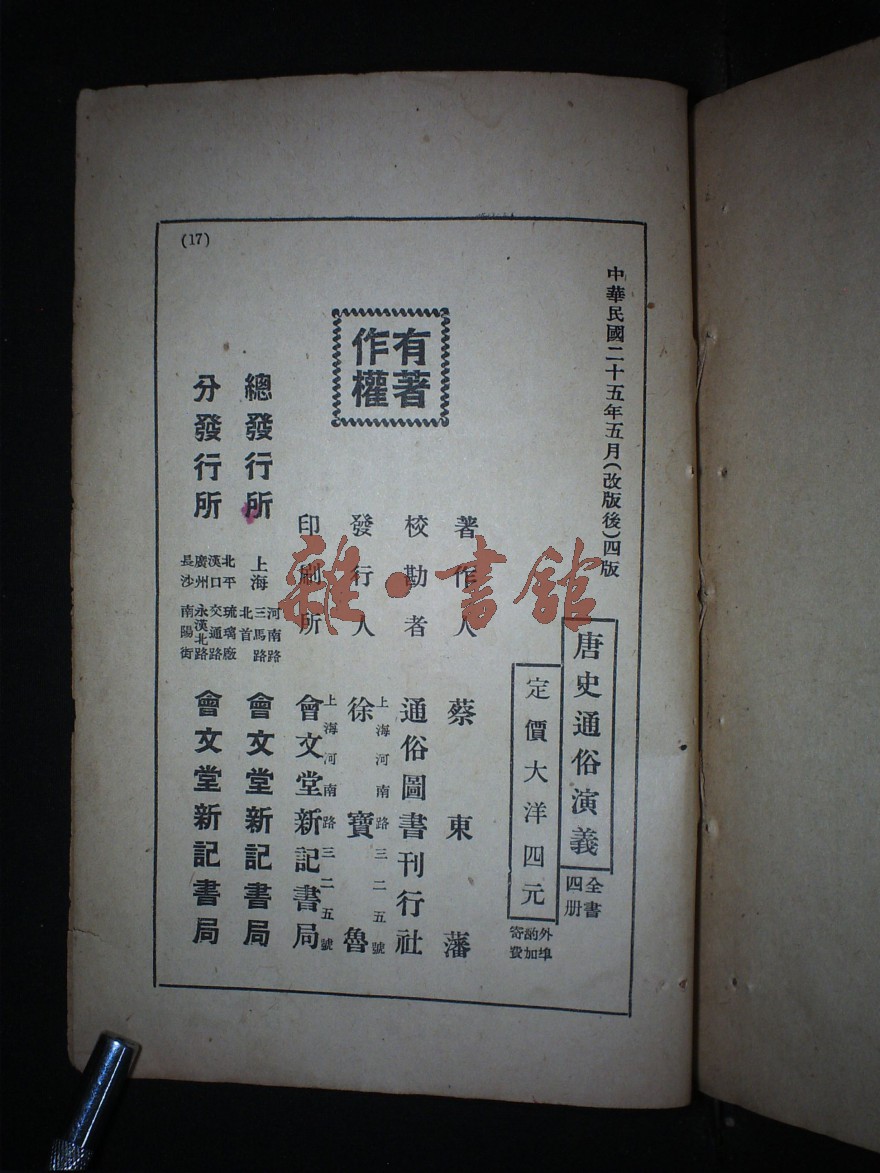 中華民國二十五年五月(改版後)四版
唐史通俗演義
全書四册
定價大洋四元
外埠酌加寄費
著作人 蔡東藩
校勘者 通俗圖書刊行社
上海河南路三二五號
發行人 徐寶魯
上海河南路三二五號
印刷所 會文堂新記書局
有著作權
總發行所 上海 河南路三馬路北首 會文堂新記書局
分發行所 北平 琉璃廠 漢口 交通路 廣州 永漢北路 長沙 南陽街 會文堂新記書局
(17)
雜·書館